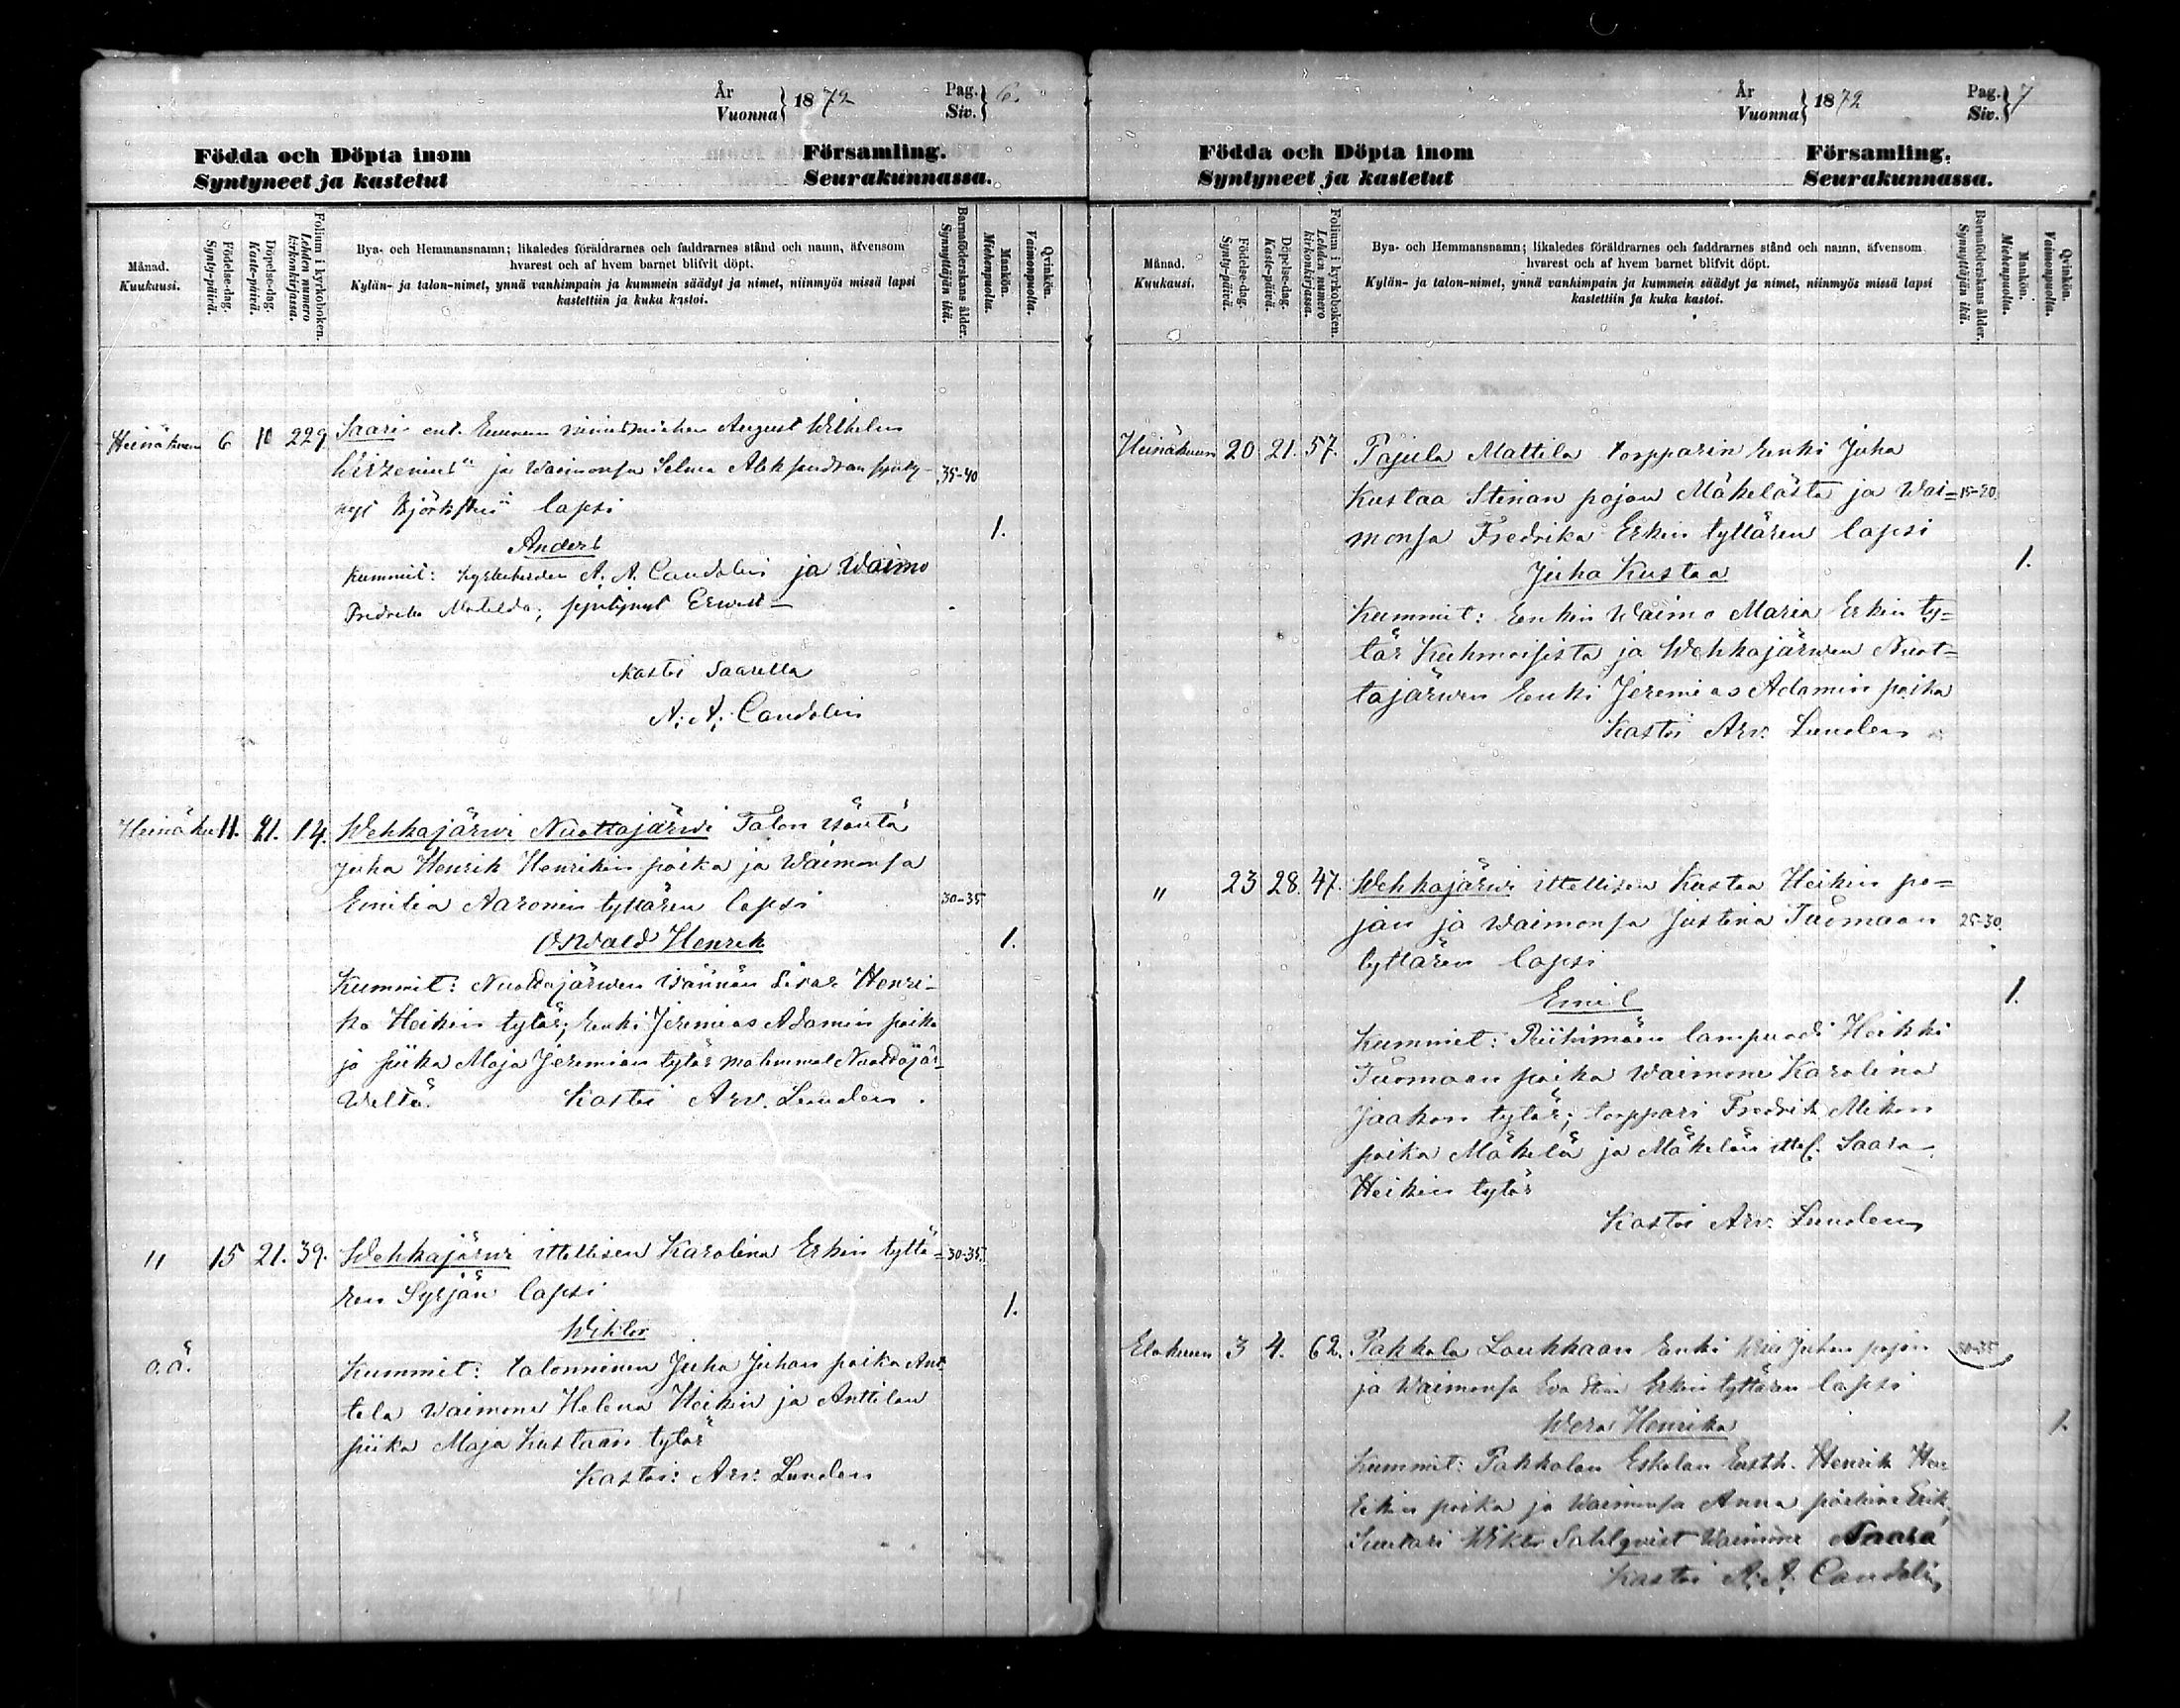 År
Vuonna } 1872
Pag.
Siv. } 6.
Födda och Döpta inom Församling.
Syntyneet ja kastetut Seurakunnassa.
Månad.
Kuukausi.
Födelse-dag.
Synty-päivä.
Döpelse-dag.
Kaste-päivä.
Folium i kyrkoboken.
Lehden numero kirkonkirjassa.
Bya- och Hemmansnamn; likaledes föräldrarnes och faddrarnes stånd och namn, äfvensom
hvarest och af hvem barnet blifvit döpt.
Kylän- ja talon-nimet, ynnä vanhimpain ja kummein säädyt ja nimet, niinmyös missä lapsi
kastettiin ja kuka kastoi.
Barnaföderskans ålder.
Synnyttäjän ikä.
Mankön.
Miehenpuolta.
Qvinkön.
Vaimonpuolta.
Heinäkuun 6 10 229 Saari ent. August Wilhelm
ja Waimonsa Selma 35-40
lapsi
1.
Anders
Kummit: A. A. Candolin ja Waimo
Fredrika Matilda;
Kastoi Saarella
A. A. Candolin
Heinäku 11. 21. 14. Wehkajärwi Nuottajärwi Talon isäntä
Juha Henrik Henrikin poika ja Waimonsa
Emilia Aaronin tyttären lapsi 30-35
Oswald Henrik 1.
Kummit: Nuottajärwen isännän sisar Henri-
ka Heikin tytär; Renki Jeremias Adamin poika
ja piika Maja Jeremian tytär molemmat Nuottajär-
weltä. Kastoi Arv. Lunden.
" 15 21. 39. Wehkajärwi ittellisen Karolina Erkin tyttä= 30-35.
ren Syrjän lapsi
1.
Wiktor
o.ä. Kummit: talonninen Juha Juhan poika Ant-
tila waimone Helena Heikin ja Anttilan
piika Maja Kustaan tytär
Kastoi: Arv. Lunden
År
Vuonna } 1872
Pag.
Siv. } 7
Födda och Döpta inom Församling.
Syntyneet ja kastetut Seurakunnassa.
Månad.
Kuukausi.
Födelse-dag.
Synty-päivä.
Döpelse-dag.
Kaste-päivä.
Folium i kyrkoboken.
Lehden numero kirkonkirjassa.
Bya- och Hemmansnamn; likaledes föräldrarnes och faddrarnes stånd och namn, äfvensom
hvarest och af hvem barnet blifvit döpt.
Kylän- ja talon-nimet, ynnä vanhimpain ja kummein säädyt ja nimet, niinmyös missä lapsi
kastettiin ja kuka kastoi.
Barnaföderskans ålder.
Synnyttäjän ikä.
Mankön.
Miehenpuolta.
Qvinkön.
Vaimonpuolta.
Heinäkuun 20 21. 57. Pajula Mattila torpparin Renki Juha
Kustaa Stinan pojan Mäkelästä ja Wai= 15-20
monsa Fredrika Erkin tyttären lapsi
1.
Juha Kustaa
Kummit: Renkin Waimo Maria Erkin ty=
tär Kuhmoisista ja Wehkajärwen Nuot=
tajärwen Renki Jeremias Adamin poika
Kastoi Arv. Lunden
" 23 28. 47. Wehkajärwi ittellisen Kustaa Heikin po=
jan ja waimonsa Justina Tuomaan 25-30.
tyttären lapsi
Emil 1.
Kummit: Riihimäen lampuodi Heikki
Tuomaan poika Waimone Karolina
Jaakon tytär; torppari Fredrik Mikon
poika Mäkelä ja Mäkelän ittel. Saara
Heikin tytär
Kastoi Arv. Lunden
Elokuun 3 4. 62. Pakkola Loukkaan Renki Juhan pojan 30-35
ja Waimonsa Eva Stin Erkin tyttären lapsi
Wera Henrika 1.
Kummit: Pakkolan Eskolan Henrik Hen-
rikin poika ja Waimonsa Anna Erik.
Suutari Wiktor Sahlqvist Waimone Saara
Kastoi A. A. Candolin